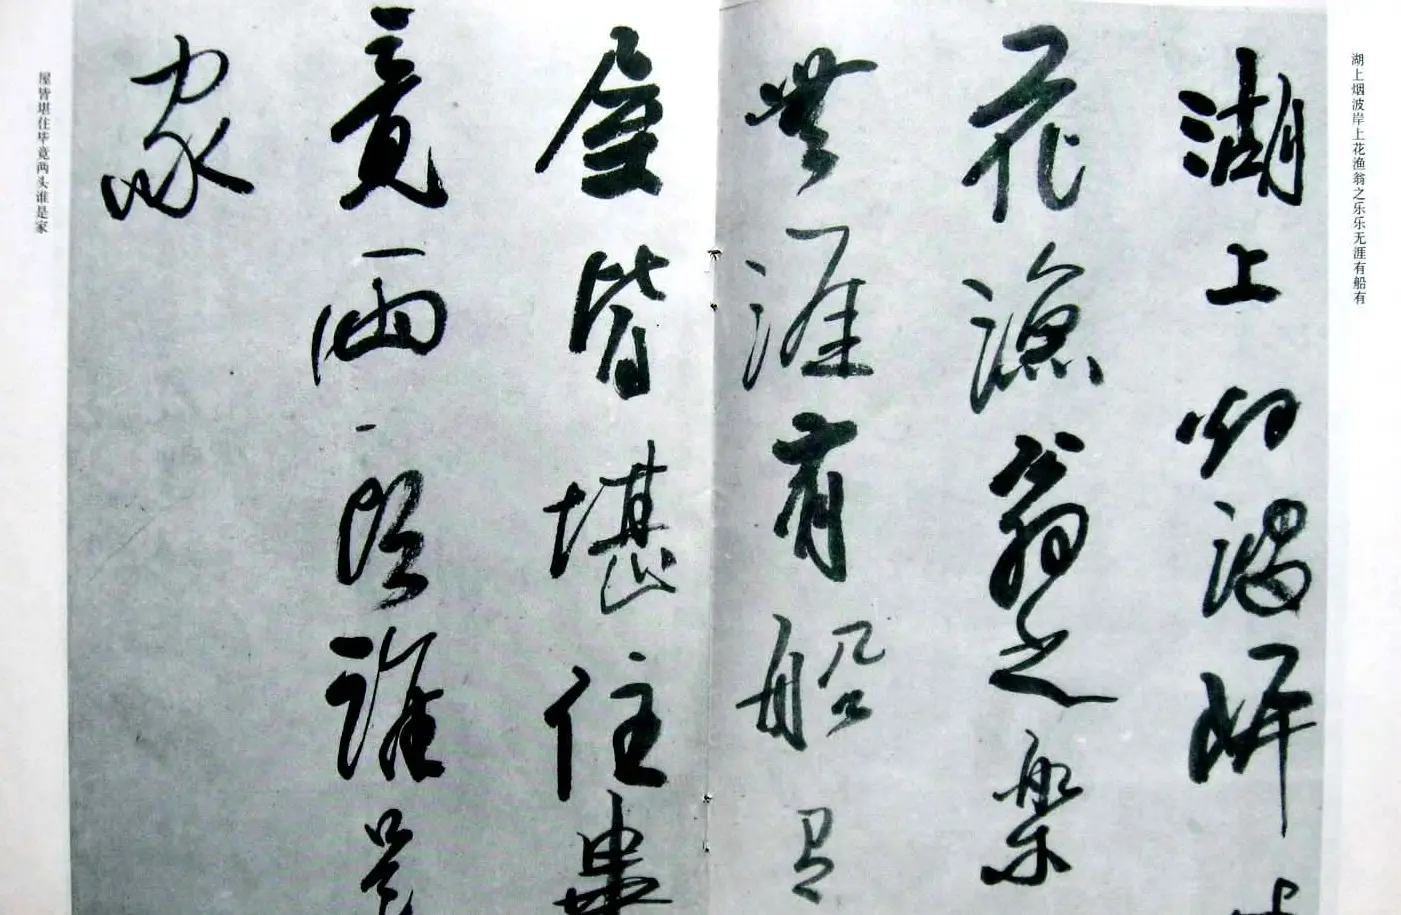 湖上烟波岸上花渔翁之乐乐无涯有船有
湖上烟波岸上
花漁翁之樂
無涯有船有
屋皆堪住畢
竟兩頭誰是
家
屋皆堪住毕竟两头谁是家